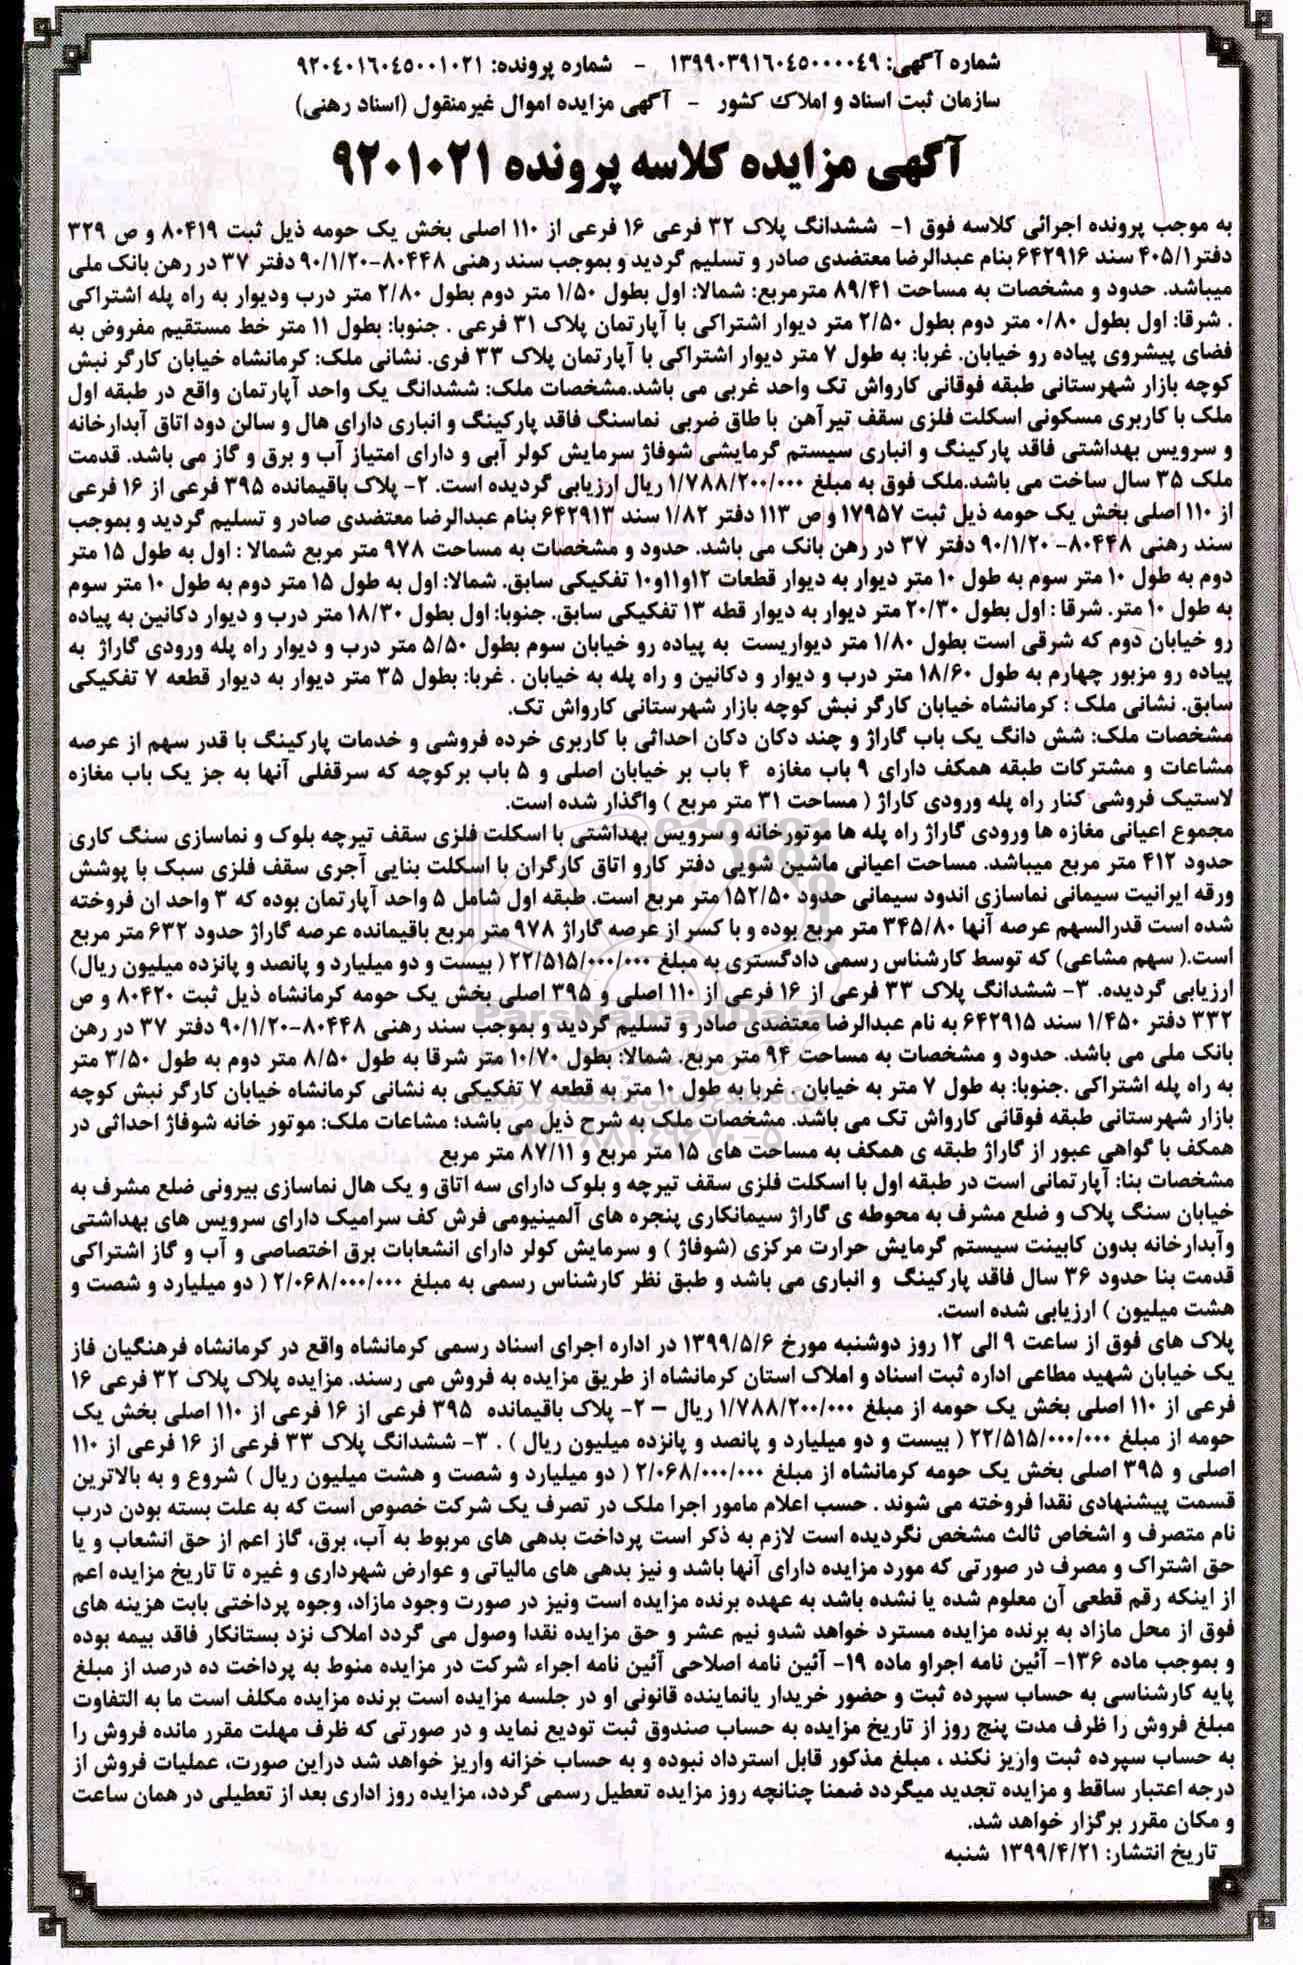 شماره آگهی: ۱۳۹۹۰۳۹۱۶۰۴۵۰۰۰۰۴۹ - شماره پرونده: ۹۲۰۴۰۱۶۰۴۵۰۰۱۰۲۱
سازمان ثبت اسناد و املاک کشور - آگهی مزایده اموال غیرمنقول (اسناد رهنی)
آگهی مزایده کلاسه پرونده ۹۲۰۱۰۲۱
به موجب پرونده اجرائی کلاسه فوق ۱- ششدانگ پلاک ۳۲ فرعی ۱۶ فرعی از ۱۱۰ اصلی بخش یک حومه ذیل ثبت ۸۰۴۱۹ و ص ۳۲۹
دفتر۴۰۵/۱ سند ۶۴۲۹۱۶ بنام عبدالرضا معتضدی صادر و تسلیم گردید و بموجب سند رهنی ۸۰۴۴۸-۹۰/۱/۲۰ دفتر ۳۷ در رهن بانک ملی
میباشد. حدود و مشخصات به مساحت ۸۹/۴۱ مترمربع: شمالا: اول بطول ۱/۵۰ متر دوم بطول ۲/۸۰ متر درب ودیوار به راه پله اشتراکی
. شرقا: اول بطول ۰/۸۰ متر دوم بطول ۲/۵۰ متر دیوار اشتراکی با آپارتمان پلاک ۳۱ فرعی . جنوبا: بطول ۱۱ متر خط مستقیم مفروض به
فضای پیشروی پیاده رو خیابان. غربا: به طول ۷ متر دیوار اشتراکی با آپارتمان پلاک ۳۳ فری. نشانی ملک: کرمانشاه خیابان کارگر نبش
کوچه بازار شهرستانی طبقه فوقانی کارواش تک واحد غربی می باشد.مشخصات ملک: ششدانگ یک واحد آپارتمان واقع در طبقه اول
ملک با کاربری مسکونی اسکلت فلزی سقف تیرآهن با طاق ضربی نماسنگ فاقد پارکینگ و انباری دارای هال و سالن دود اتاق آبدارخانه
و سرویس بهداشتی فاقد پارکینگ و انباری سیستم گرمایشی شوفاژ سرمایش کولر آبی و دارای امتیاز آب و برق و گاز می باشد. قدمت
ملک ۳۵ سال ساخت می باشد.ملک فوق به مبلغ ۱/۷۸۸/۲۰۰/۰۰۰ ریال ارزیابی گردیده است. ۲- پلاک باقیمانده ۳۹۵ فرعی از ۱۶ فرعی
از ۱۱۰ اصلی بخش یک حومه ذیل ثبت ۱۷۹۵۷ و ص ۱۱۳ دفتر ۱/۸۲ سند ۶۴۲۹۱۳ بنام عبدالرضا معتضدی صادر و تسلیم گردید و بموجب
سند رهنی ۸۰۴۴۸- ۹۰/۱/۲۰ دفتر ۳۷ در رهن بانک می باشد. حدود و مشخصات به مساحت ۹۷۸ متر مربع شمالا : اول به طول ۱۵ متر
دوم به طول ۱۰ متر سوم به طول ۱۰ متر دیوار به دیوار قطعات ۱۲و۱۱و۱۰ تفکیکی سابق. شمالا: اول به طول ۱۵ متر دوم به طول ۱۰ متر سوم
به طول ۱۰ متر. شرقا : اول بطول ۲۰/۳۰ متر دیوار به دیوار قطه ۱۳ تفکیکی سابق. جنوبا: اول بطول ۱۸/۳۰ متر درب و دیوار دکانین به پیاده
رو خیابان دوم که شرقی است بطول ۱/۸۰ متر دیواریست به پیاده رو خیابان سوم بطول ۵/۵۰ متر درب و دیوار راه پله ورودی گاراژ به
پیاده رو مزبور چهارم به طول ۱۸/۶۰ متر درب و دیوار و دکانین و راه پله به خیابان . غربا: بطول ۳۵ متر دیوار به دیوار قطعه ۷ تفکیکی
سابق. نشانی ملک : کرمانشاه خیابان کارگر نبش کوچه بازار شهرستانی کارواش تک.
مشخصات ملک: شش دانگ یک باب گاراژ و چند دکان دکان احداثی با کاربری خرده فروشی و خدمات پارکینگ با قدر سهم از عرصه
مشاعات و مشترکات طبقه همکف دارای ۹ باب مغازه ۴ باب بر خیابان اصلی و ۵ باب برکوچه که سرقفلی آنها به جز یک باب مغازه
لاستیک فروشی کنار راه پله ورودی کاراژ ( مساحت ۳۱ متر مربع ) واگذار شده است.
مجموع اعیانی مغازه ها ورودی گاراژ راه پله ها موتورخانه و سرویس بهداشتی با اسکلت فلزی سقف تیرچه بلوک و نماسازی سنگ کاری
حدود ۴۱۲ متر مربع میباشد. مساحت اعیانی ماشین شویی دفتر کارو اتاق کارگران با اسکلت بنایی آجری سقف فلزی سبک با پوشش
ورقه ایرانیت سیمانی نماسازی اندود سیمانی حدود ۱۵۲/۵۰ متر مربع است. طبقه اول شامل ۵ واحد آپارتمان بوده که ۳ واحد ان فروخته
شده است قدرالسهم عرصه آنها ۳۴۵/۸۰ متر مربع بوده و با کسر از عرصه گاراژ ۹۷۸ متر مربع باقیمانده عرصه گاراژ حدود ۶۳۲ متر مربع
است.( سهم مشاعی) که توسط کارشناس رسمی دادگستری به مبلغ ۲۲/۵۱۵/۰۰۰/۰۰۰ ( بیست و دو میلیارد و پانصد و پانزده میلیون ریال)
ارزیابی گردیده. ۳- ششدانگ پلاک ۳۳ فرعی از ۱۶ فرعی از ۱۱۰ اصلی و ۳۹۵ اصلی بخش یک حومه کرمانشاه ذیل ثبت ۸۰۴۲۰ و ص
۳۳۲ دفتر ۱/۴۵۰ سند ۶۴۲۹۱۵ به نام عبدالرضا معتضدی صادر و تسلیم گردید و بموجب سند رهنی ۸۰۴۴۸-۹۰/۱/۲۰ دفتر ۳۷ در رهن
بانک ملی می باشد. حدود و مشخصات به مساحت ۹۴ متر مربع. شمالا: بطول ۱۰/۷۰ متر شرقا به طول ۸/۵۰ متر دوم به طول ۳/۵۰ متر
به راه پله اشتراکی .جنوبا: به طول ۷ متر به خیابان . غربا به طول ۱۰ متر به قطعه ۷ تفکیکی به نشانی کرمانشاه خیابان کارگر نبش کوچه
بازار شهرستانی طبقه فوقانی کارواش تک می باشد. مشخصات ملک به شرح ذیل می باشد؛ مشاعات ملک: موتور خانه شوفاژ احداثی در
همکف با گواهی عبور از گاراژ طبقه ی همکف به مساحت های ۱۵ متر مربع و ۸۷/۱۱ متر مربع
مشخصات بنا: آپارتمانی است در طبقه اول با اسکلت فلزی سقف تیرچه و بلوک دارای سه اتاق و یک هال نماسازی بیرونی ضلع مشرف به
خیابان سنگ پلاک و ضلع مشرف به محوطه ی گاراژ سیمانکاری پنجره های آلمینیومی فرش کف سرامیک دارای سرویس های بهداشتی
وآبدارخانه بدون کابینت سیستم گرمایش حرارت مرکزی (شوفاژ ) و سرمایش کولر دارای انشعابات برق اختصاصی و آب و گاز اشتراکی
قدمت بنا حدود ۳۶ سال فاقد پارکینگ و انباری می باشد و طبق نظر کارشناس رسمی به مبلغ ۲/۰۶۸/۰۰۰/۰۰۰ ( دو میلیارد و شصت و
هشت میلیون ) ارزیابی شده است.
پلاک های فوق از ساعت ۹ الی ۱۲ روز دوشنبه مورخ ۱۳۹۹/۵/۶ در اداره اجرای اسناد رسمی کرمانشاه واقع در کرمانشاه فرهنگیان فاز
یک خیابان شهید مطاعی اداره ثبت اسناد و املاک استان کرمانشاه از طریق مزایده به فروش می رسند. مزایده پلاک پلاک ۳۲ فرعی ۱۶
فرعی از ۱۱۰ اصلی بخش یک حومه از مبلغ ۱/۷۸۸/۲۰۰/۰۰۰ ریال – ۲- پلاک باقیمانده ۳۹۵ فرعی از ۱۶ فرعی از ۱۱۰ اصلی بخش یک
حومه از مبلغ ۲۲/۵۱۵/۰۰۰/۰۰۰ ( بیست و دو میلیارد و پانصد و پانزده میلیون ریال ) . ۳- ششدانگ پلاک ۳۳ فرعی از ۱۶ فرعی از ۱۱۰
اصلی و ۳۹۵ اصلی بخش یک حومه کرمانشاه از مبلغ ۲/۰۶۸/۰۰۰/۰۰۰ ( دو میلیارد و شصت و هشت میلیون ریال ) شروع و به بالاترین
قسمت پیشنهادی نقدا فروخته می شوند . حسب اعلام مامور اجرا ملک در تصرف یک شرکت خصوص است که به علت بسته بودن درب
نام متصرف و اشخاص ثالث مشخص نگردیده است لازم به ذکر است پرداخت بدهی های مربوط به آب، برق، گاز اعم از حق انشعاب و یا
حق اشتراک و مصرف در صورتی که مورد مزایده دارای آنها باشد و نیز بدهی های مالیاتی و عوارض شهرداری و غیره تا تاریخ مزایده اعم
از اینکه رقم قطعی آن معلوم شده یا نشده باشد به عهده برنده مزایده است ونیز در صورت وجود مازاد، وجوه پرداختی بابت هزینه های
فوق از محل مازاد به برنده مزایده مسترد خواهد شدو نیم عشر و حق مزایده نقدا وصول می گردد املاک نزد بستانکار فاقد بیمه بوده
و بموجب ماده ۱۳۶- آئین نامه اجراو ماده ۱۹- آئین نامه اصلاحی آئین نامه اجراء شرکت در مزایده منوط به پرداخت ده درصد از مبلغ
پایه کارشناسی به حساب سپرده ثبت و حضور خریدار یانماینده قانونی او در جلسه مزایده است برنده مزایده مکلف است ما به التفاوت
مبلغ فروش را ظرف مدت پنج روز از تاریخ مزایده به حساب صندوق ثبت تودیع نماید و در صورتی که ظرف مهلت مقرر مانده فروش را
به حساب سپرده ثبت واریز نکند ، مبلغ مذکور قابل استرداد نبوده و به حساب خزانه واریز خواهد شد دراین صورت، عملیات فروش از
درجه اعتبار ساقط و مزایده تجدید میگردد ضمنا چنانچه روز مزایده تعطیل رسمی گردد، مزایده روز اداری بعد از تعطیلی در همان ساعت
و مکان مقرر برگزار خواهد شد.
تاریخ انتشار: ۱۳۹۹/۴/۲۱ شنبه
ParsNamadData